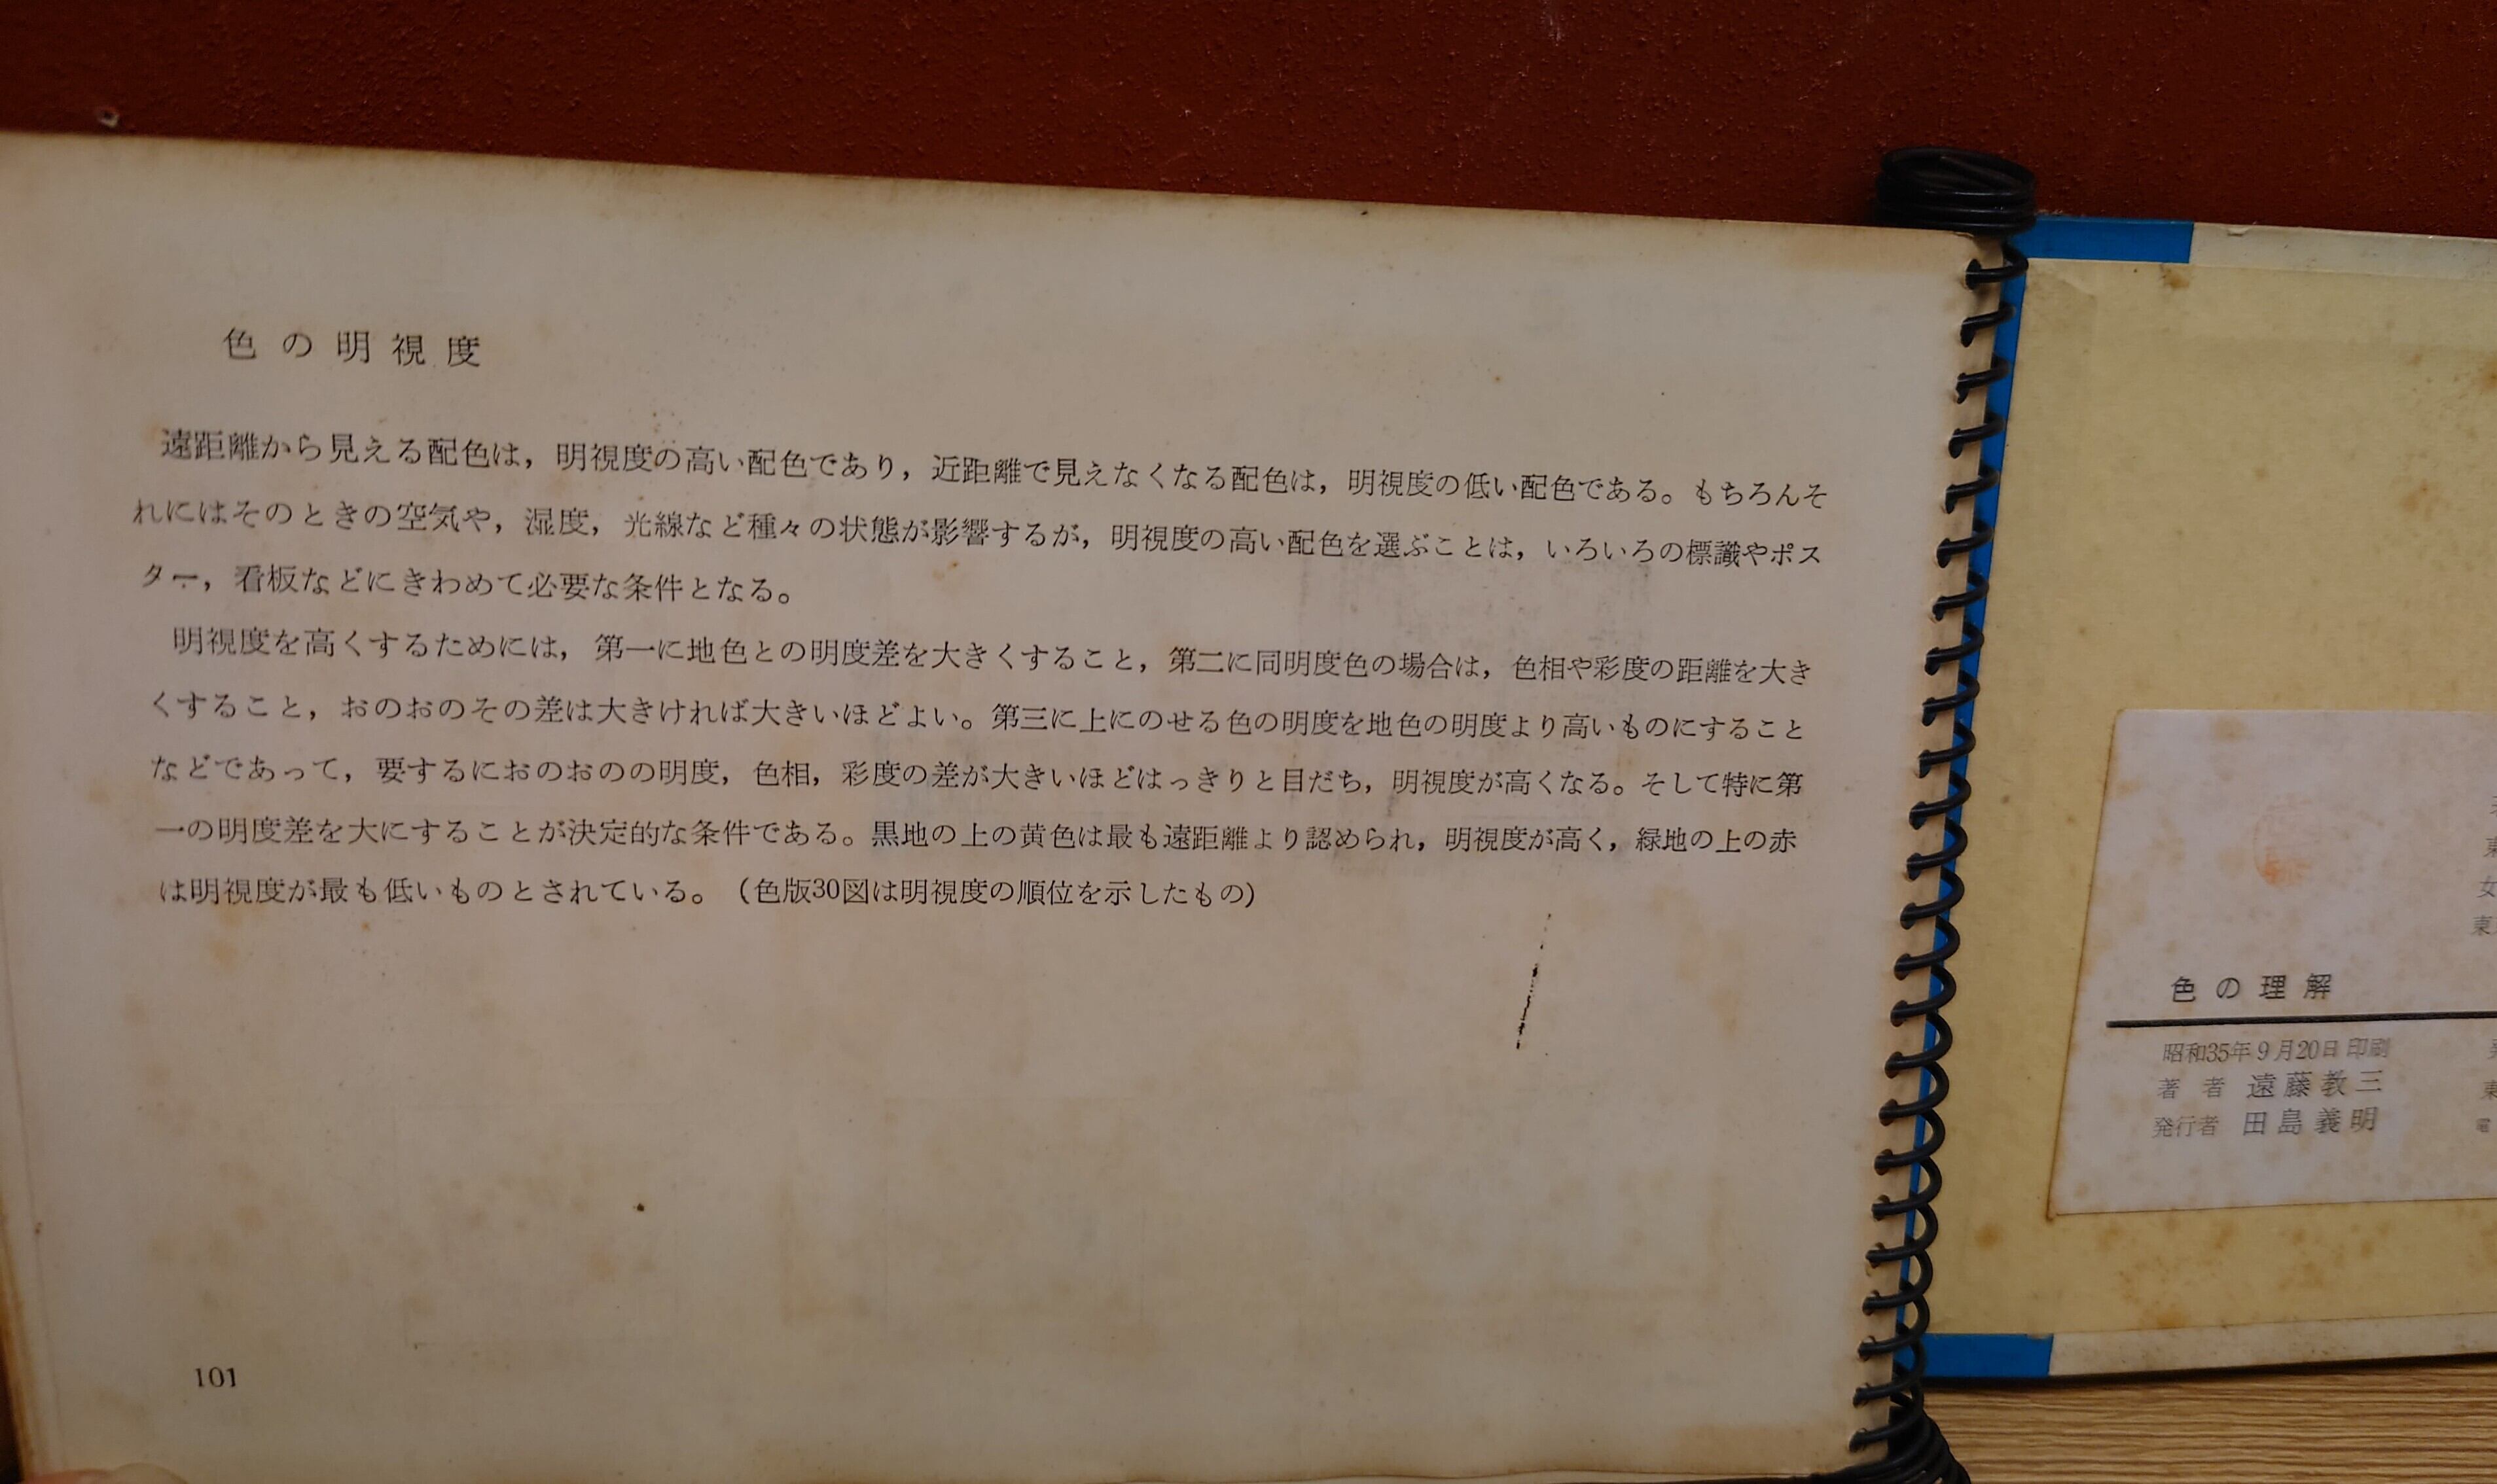 色の明視度
遠距離から見える配色は，明視度の高い配色であり，近距離で見えなくなる配色は，明視度の低い配色である。もちろんそ
れにはそのときの空気や，湿度，光線など種々の状態が影響するが，明視度の高い配色を選ぶことは，いろいろの標識やポス
ター，看板などにきわめて必要な条件となる。
明視度を高くするためには，第一に地色との明度差を大きくすること，第二に同明度色の場合は，色相や彩度の距離を大き
くすること，おのおのその差は大きければ大きいほどよい。第三に上にのせる色の明度を地色の明度より高いものにすること
などであって，要するにおのおのの明度，色相，彩度の差が大きいほどはっきりと目だち，明視度が高くなる。そして特に第
一の明度差を大にすることが決定的な条件である。黒地の上の黄色は最も遠距離より認められ，明視度が高く，緑地の上の赤
は明視度が最も低いものとされている。（色版30図は明視度の順位を示したもの）
101
色の理解
昭和35年9月20日 印刷
著者 遠藤教三
発行者 田島義明
女
東